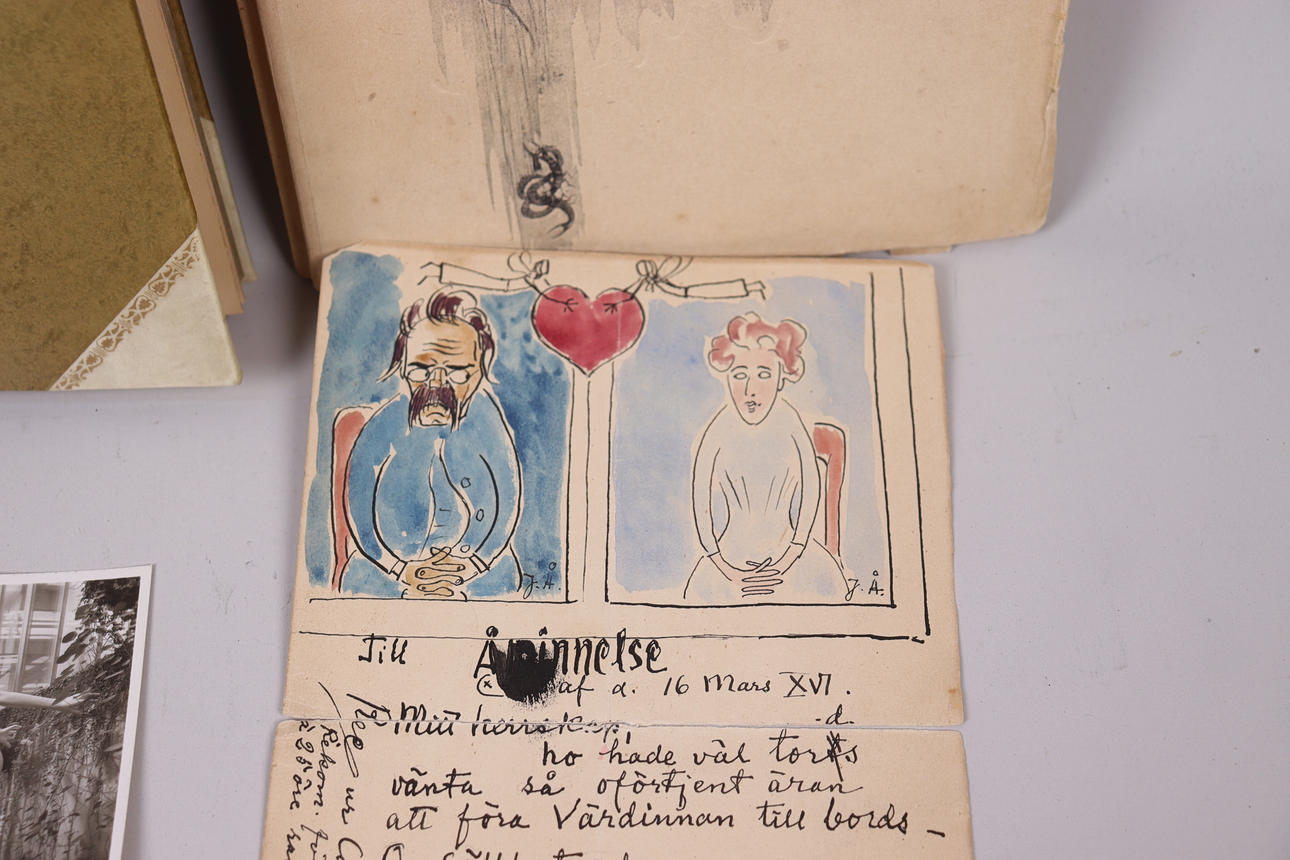 J.Å.
J.Å.
Till Åminnelse
af d. 16 Mars XVI.
Mitt herrskap,
ho hade väl torts
vänta så oförtjent äran
att föra Värdinnan till bords -
Rekom.